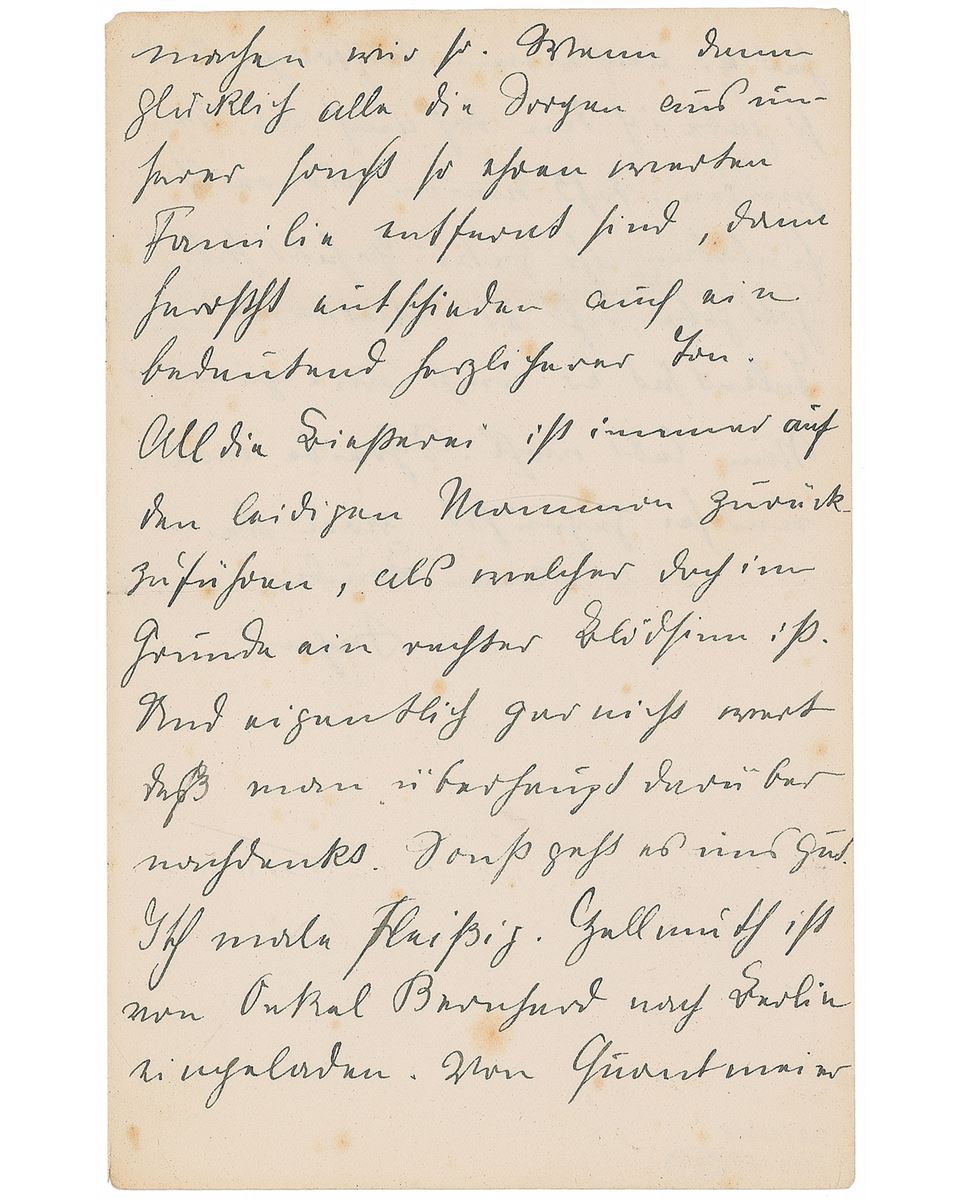 machen wir so. Wenn dann
glücklich alle die Sorgen aus un-
serer sonst so ehren werten
Familie entfernt sind, dann
herrscht entschieden auch ein
bedeutend herzlicherer Ton.
All die Biesterei ist immer auf
den leidigen Mammon zurück-
zuführen, als welcher doch im
Grunde ein rechter Blödsinn ist.
Und eigentlich gar nicht wert
daß man überhaupt darüber
nachdenkt. Sonst geht es uns gut.
Ich male fleißig. Hellmuth ist
von Onkel Bernhard nach Berlin
eingeladen. Von Quantmeier